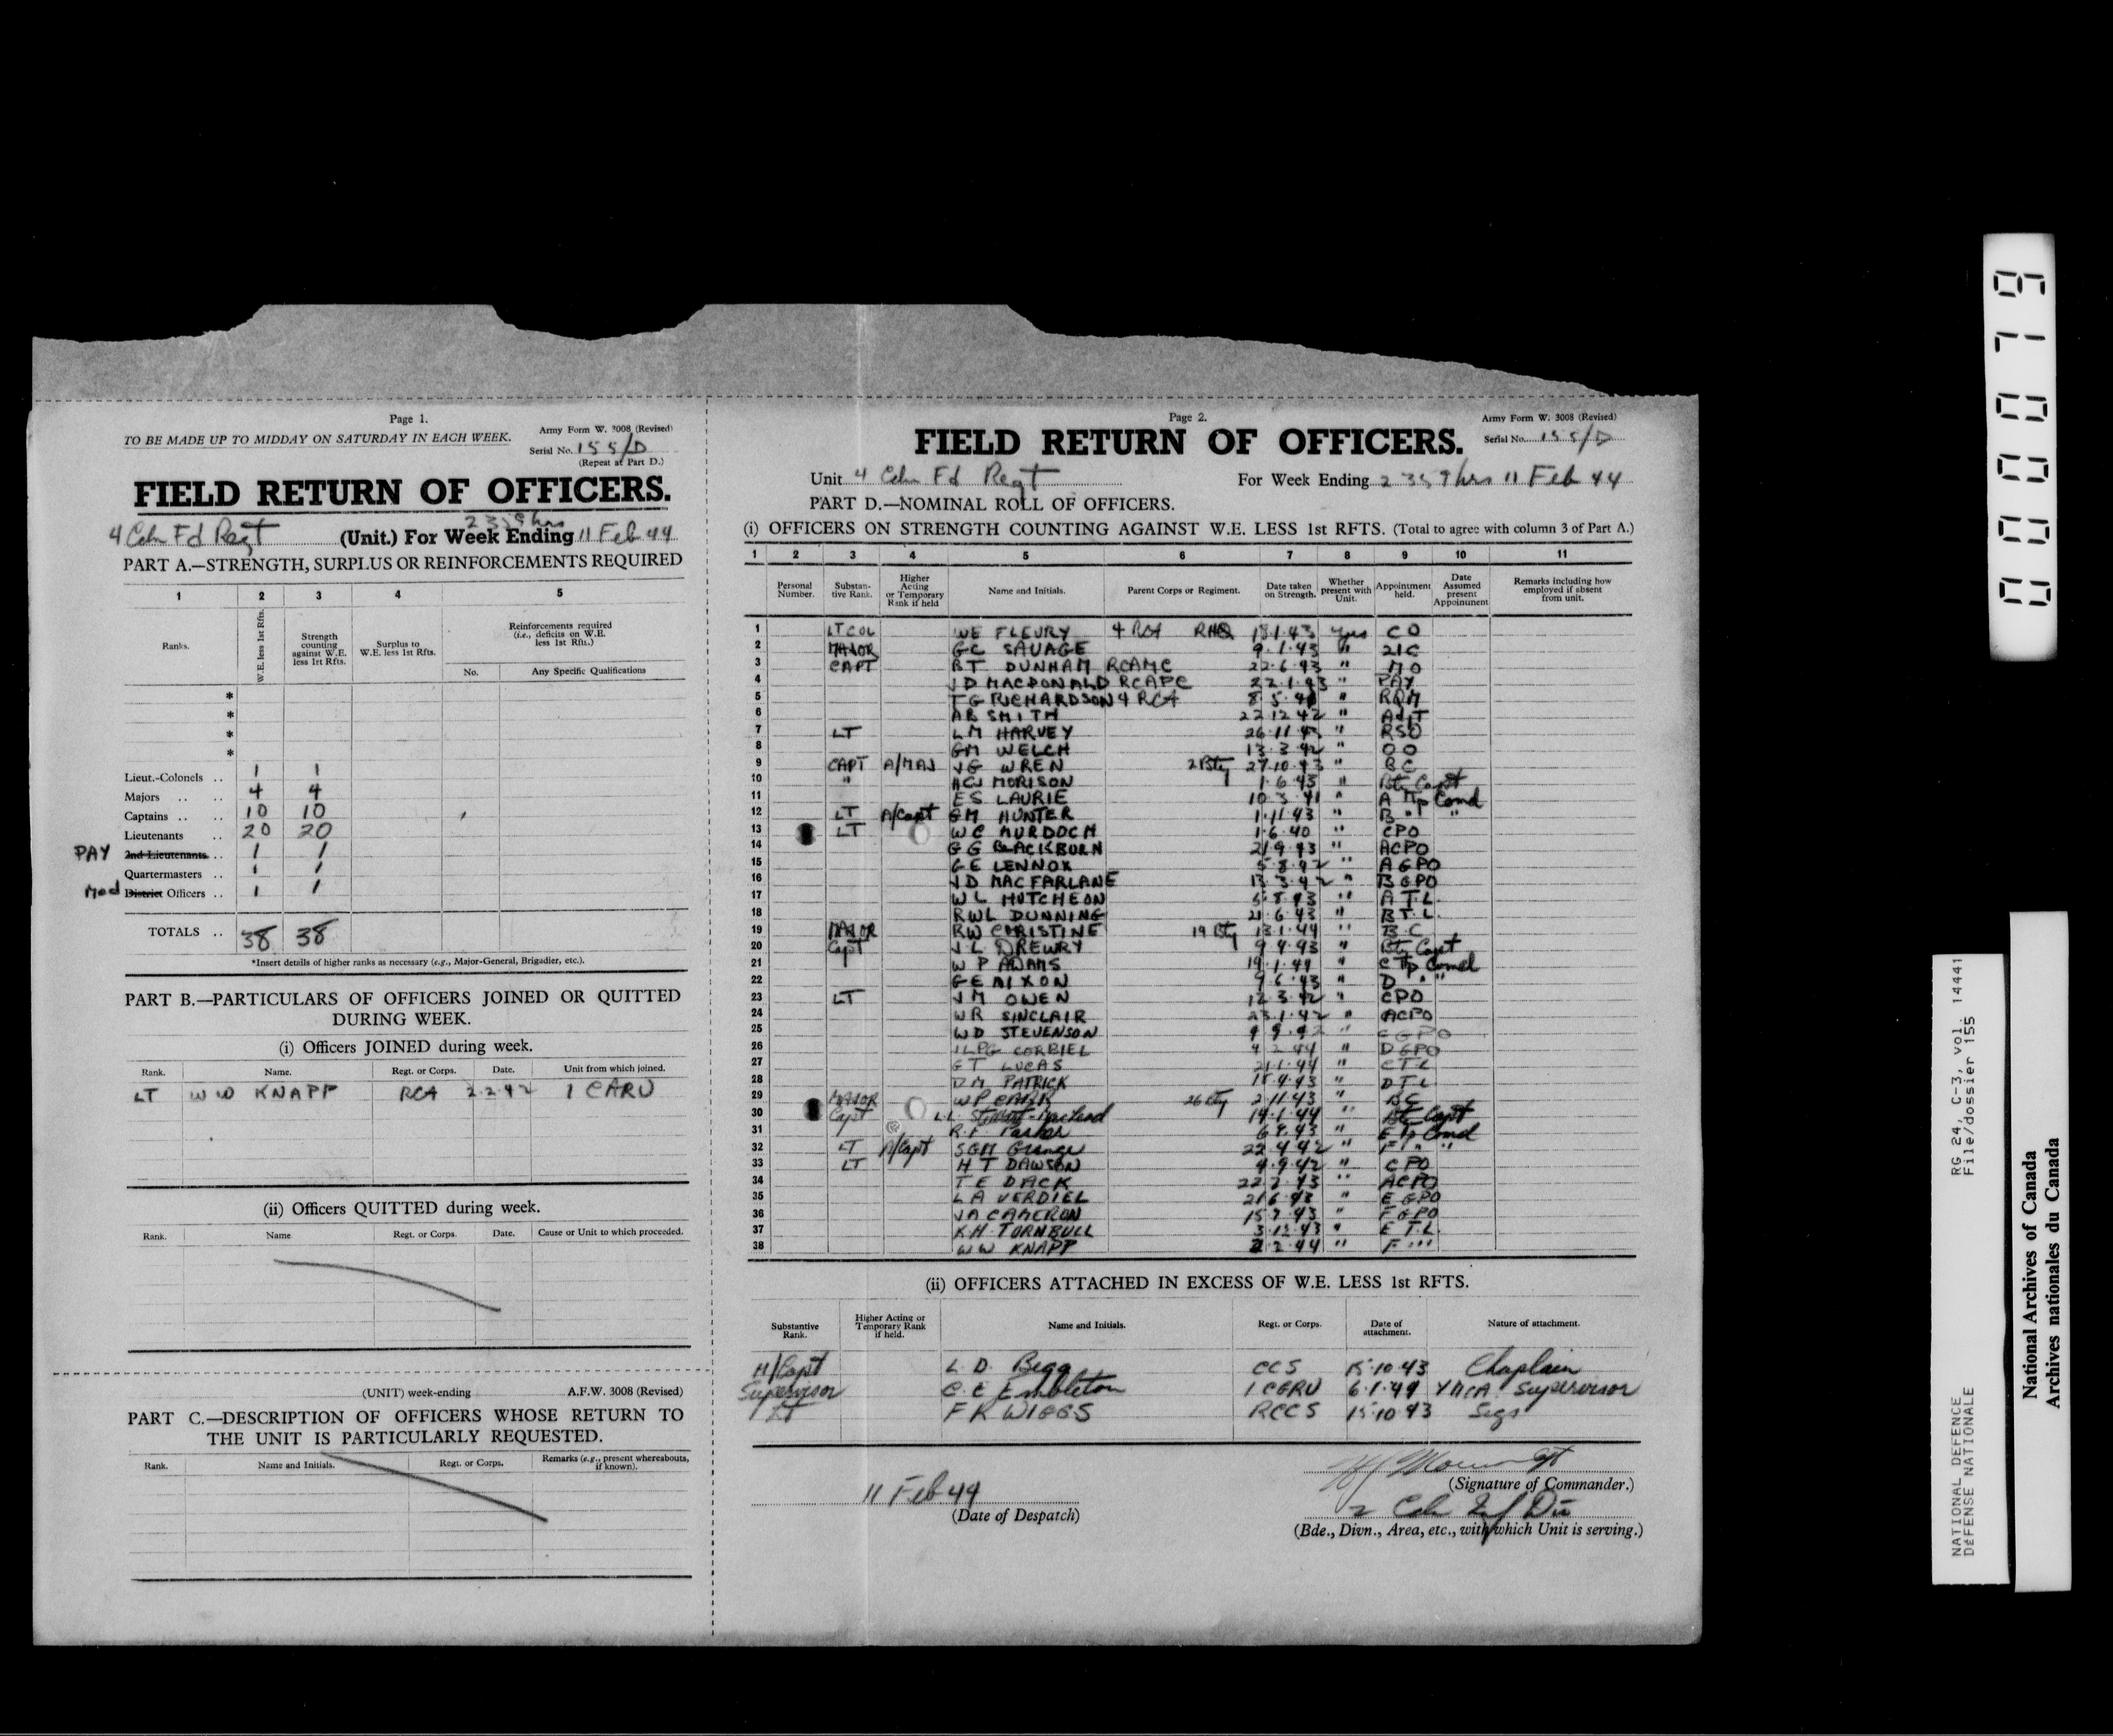 Page 1.
TO BE MADE UP TO MIDDAY ON SATURDAY IN EACH WEEK.
Army Form W. 3008 (Revised)
Serial No. 155/D
(Repeat at Part D.)
FIELD RETURN OF OFFICERS.
2359 hrs
4 Cdn Fd Regt (Unit.) For Week Ending 11 Feb 44
PART A.—STRENGTH, SURPLUS OR REINFORCEMENTS REQUIRED
1 2 3 4 5
Ranks. W.E. less 1st Rfts. Strength counting against W.E. less 1rt Rfts. Surplus to W.E. less 1st Rfts. Reinforcements required (i.e., deficits on W.E. less 1st Rfts.)
No. Any Specific Qualifications
*
*
*
*
Lieut.-Colonels .. 1 1
Majors .. .. 4 4
Captains .. .. 10 10
Lieutenants .. 20 20
PAY 2nd Lieutenants .. 1 1
Quartermasters .. 1 1
Med District Officers .. 1 1
TOTALS .. 38 38
*Insert details of higher ranks as necessary (e.g., Major-General, Brigadier, etc.).
PART B.—PARTICULARS OF OFFICERS JOINED OR QUITTED
DURING WEEK.
(i) Officers JOINED during week.
Rank. Name. Regt. or Corps. Date. Unit from which joined.
LT W W KNAPP RCA 2.2.42 1 CARU
(ii) Officers QUITTED during week.
Rank. Name Regt. or Corps. Date. Cause or Unit to which proceeded.
(UNIT) week-ending A.F.W. 3008 (Revised)
PART C.—DESCRIPTION OF OFFICERS WHOSE RETURN TO
THE UNIT IS PARTICULARLY REQUESTED.
Rank. Name and Initials. Regt. or Corps. Remarks (e.g., present whereabouts, if known).
Page 2.
Army Form W. 3008 (Revised)
FIELD RETURN OF OFFICERS.
Serial No. 155/D
Unit 4 Cdn Fd Regt For Week Ending 2359 hrs 11 Feb 44
PART D.—NOMINAL ROLL OF OFFICERS.
(i) OFFICERS ON STRENGTH COUNTING AGAINST W.E. LESS 1st RFTS. (Total to agree with column 3 of Part A.)
1 2 3 4 5 6 7 8 9 10 11
Personal Number. Substantive Rank. Higher Acting or Temporary Rank if held Name and Initials. Parent Corps or Regiment. Date taken on Strength. Whether present with Unit. Appointment held. Date Assumed present Appointment Remarks including how employed if absent from unit.
1 LT COL WE FLEURY 4 RCA RHQ Yes CO
2 MAJOR GC SAVAGE 9.1.43 " 2IC
3 CAPT RT DUNHAM RCAMC 22.6.43 " MO
4 JD MACDONALD RCAPC 22.1.43 " PAY
5 TG RICHARDSON 4 RCA " RQM
6 AB SMITH 22 12 42 " Adjt
7 LT LM HARVEY " RSO
8 GM WELCH 13 3 42 " OO
9 CAPT A/MAJ JG WREN 2 Bty 27.10.43 " BC
10 " HCJ MORISON 1.6.43 " Bty Capt
11 ES LAURIE 10 3 41 " A Tp Comd
12 LT A/Capt GM HUNTER 1.11.43 " B " "
13 LT WC MURDOCH 1.6.40 " CPO
14 GG BLACKBURN 21 9 43 " ACPO
15 GE LENNOX 5 8 42 " A GPO
16 JD MACFARLANE 13 3 42 " B GPO
17 WL HUTCHEON " A T.L.
18 RWL DUNNING 21 6 43 " B T.L.
19 MAJOR RW CHRISTINE 19 Bty 13.1.44 " B C
20 Capt J L DREWRY 9 4 43 " Bty Capt
21 W P ADAMS 19.1.44 " C Tp Comd
22 GE NIXON 7.6.43 " D " "
23 LT J M OWEN 12 3 42 " CPO
24 WR SINCLAIR 23.1.42 " ACPO
25 WD STEVENSON 9 9 42 " C GPO
26 CORBIEL 4 2 44 " D GPO
27 GT LUCAS 21.1.44 " C T L
28 DM PATRICK " D T L
29 MAJOR WP 26 Bty 2 11 43 " BC
30 Capt 14.1.44 " Bty Capt
31 R.F. Parker " E Tp Comd
32 LT A/Capt SGM Grange 22 4 42 " F " "
33 LT H T DAWSON 4.9.42 " CPO
34 T E DACK " ACPO
35 L A VERDIEL 21 6 43 " E GPO
36 JA CAMERON 15 7 43 " F GPO
37 K H TURNBULL 3.12.43 " E T.L.
38 W W KNAPP 2.2.44 " F " "
(ii) OFFICERS ATTACHED IN EXCESS OF W.E. LESS 1st RFTS.
Substantive Rank. Higher Acting or Temporary Rank if held. Name and Initials. Regt. or Corps. Date of attachment. Nature of attachment.
H/Capt L. D. Begg CCS 15.10.43 Chaplain
Supervisor C. E Embleton 1 CGRU 6.1.44 YMCA Supervisor
Lt F R WIGGS RCCS 15.10 43 Sigs
11 Feb 44
(Date of Despatch)
(Signature of Commander.)
2 Cdn Inf Div
(Bde., Divn., Area, etc., with which Unit is serving.)
0000719
RG 24, C-3, vol. 14441
File/dossier 155
NATIONAL DEFENCE
DÉFENSE NATIONALE
National Archives of Canada
Archives nationales du Canada